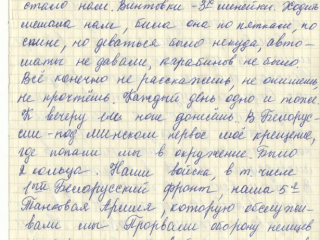 стало нам. Винтовки - 3х линейки. Ходить
мешала нам, била она по пяткам, по
спине, но деваться было некуда, авто-
маты не давали, карабинов не было.
Всё конечно не расскажешь, не опишешь,
не прочтёшь. Каждый день одно и тоже.
К вечеру еле ноги донёшь. В Белорус-
сии - под Минском первое моё крещение,
где попали мы в окружение. Было
2 кольца. Наши войска, в т. числе
1ый Белорусский фронт, наша 5ая
Танковая Армия, которую обслужи-
вали мы. Прорвали оборону немцев